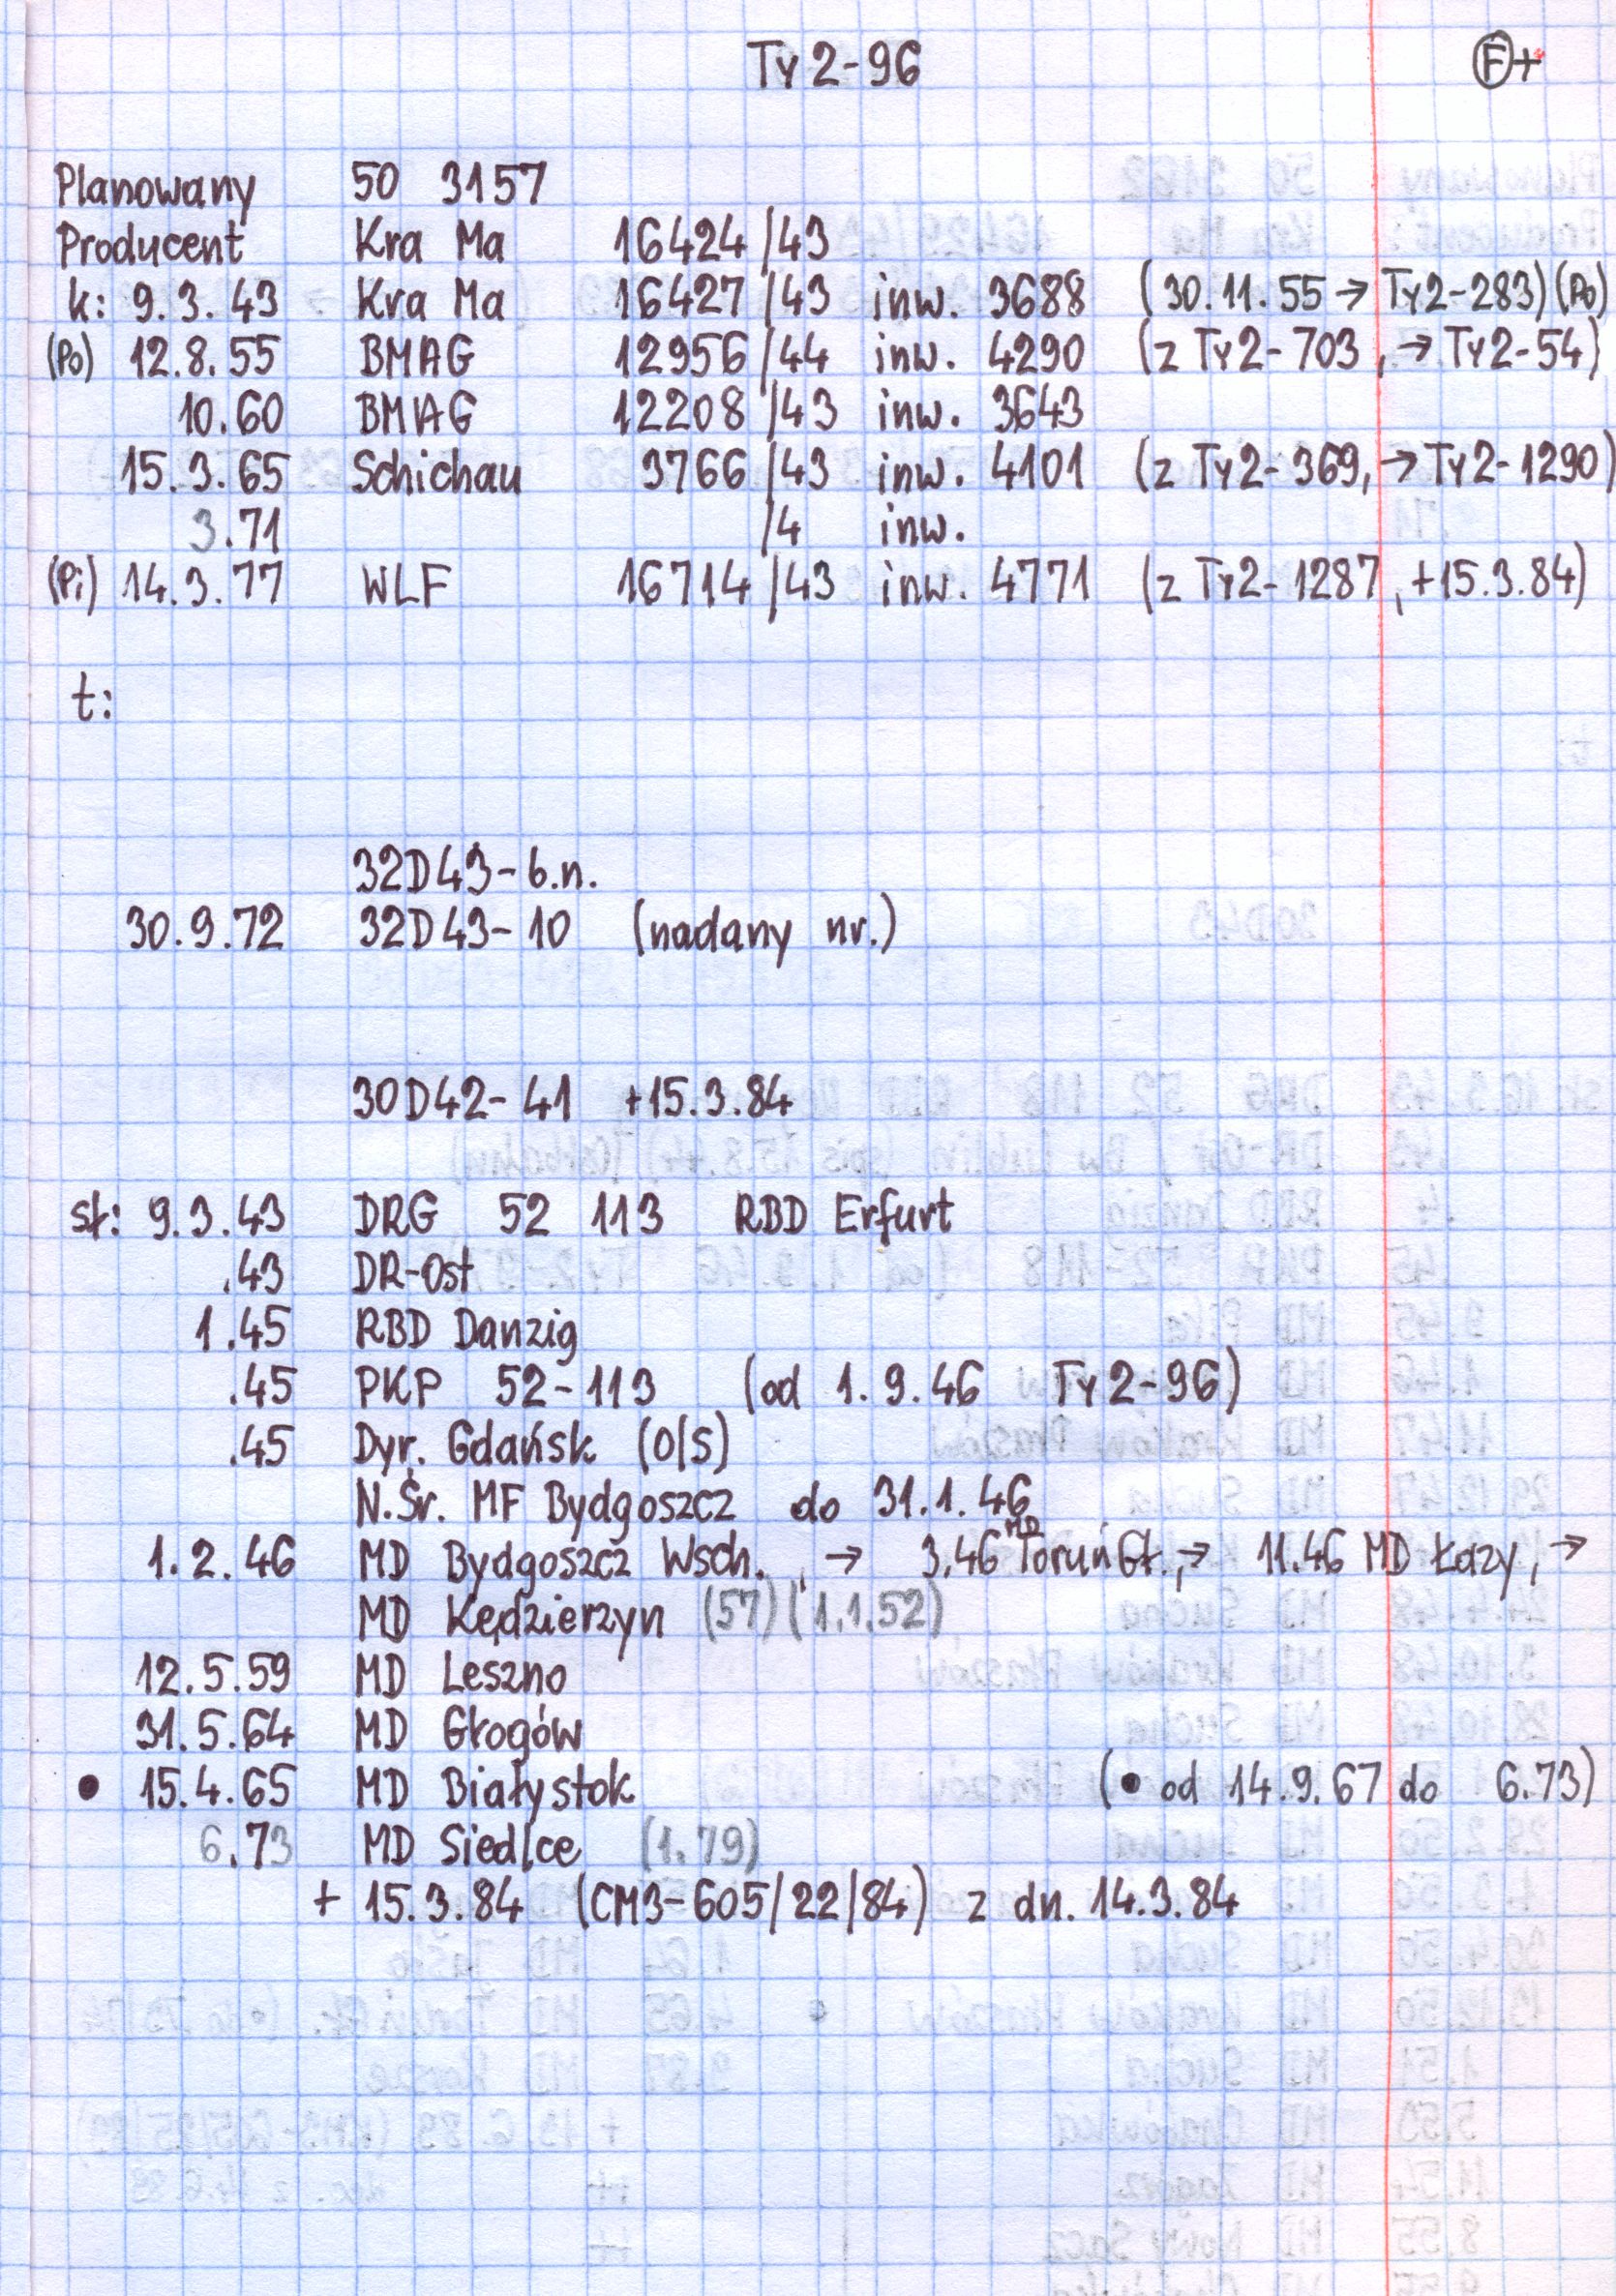 Ty2-96 (F)+
Planowany 50 3157
Producent Kra Ma 16424/43
k: 9.3.43 Kra Ma 16427/43 inw. 3688 (30.11.55 → Ty2-283)(Po)
(Po) 12.8.55 BMAG 12956/44 inw. 4290 (z Ty2-703, → Ty2-54)
10.60 BMAG 12208/43 inw. 3643
15.3.65 Schichau 3766/43 inw. 4101 (z Ty2-369, → Ty2-1290)
3.71 /4 inw.
(Pi) 14.3.77 WLF 16714/43 inw. 4771 (z Ty2-1287, +15.3.84)
t:
32D43-b.n.
30.9.72 32D43-10 (nadany nr.)
30D42-41 +15.3.84
sł: 9.3.43 DRG 52 113 RBD Erfurt
.43 DR-Ost
1.45 RBD Danzig
.45 PKP 52-113 (od 1.9.46 Ty2-96)
.45 Dyr. Gdańsk (O/S)
N.Śr. MF Bydgoszcz do 31.1.46
1.2.46 MD Bydgoszcz Wsch., → 3.46 MD Toruń Gł., → 11.46 MD Łazy, →
MD Kędzierzyn (57)(1.1.52)
12.5.59 MD Leszno
31.5.64 MD Głogów
● 15.4.65 MD Białystok (● od 14.9.67 do 6.73)
6.73 MD Siedlce (1.79)
+ 15.3.84 (CM3-605/22/84) z dn. 14.3.84